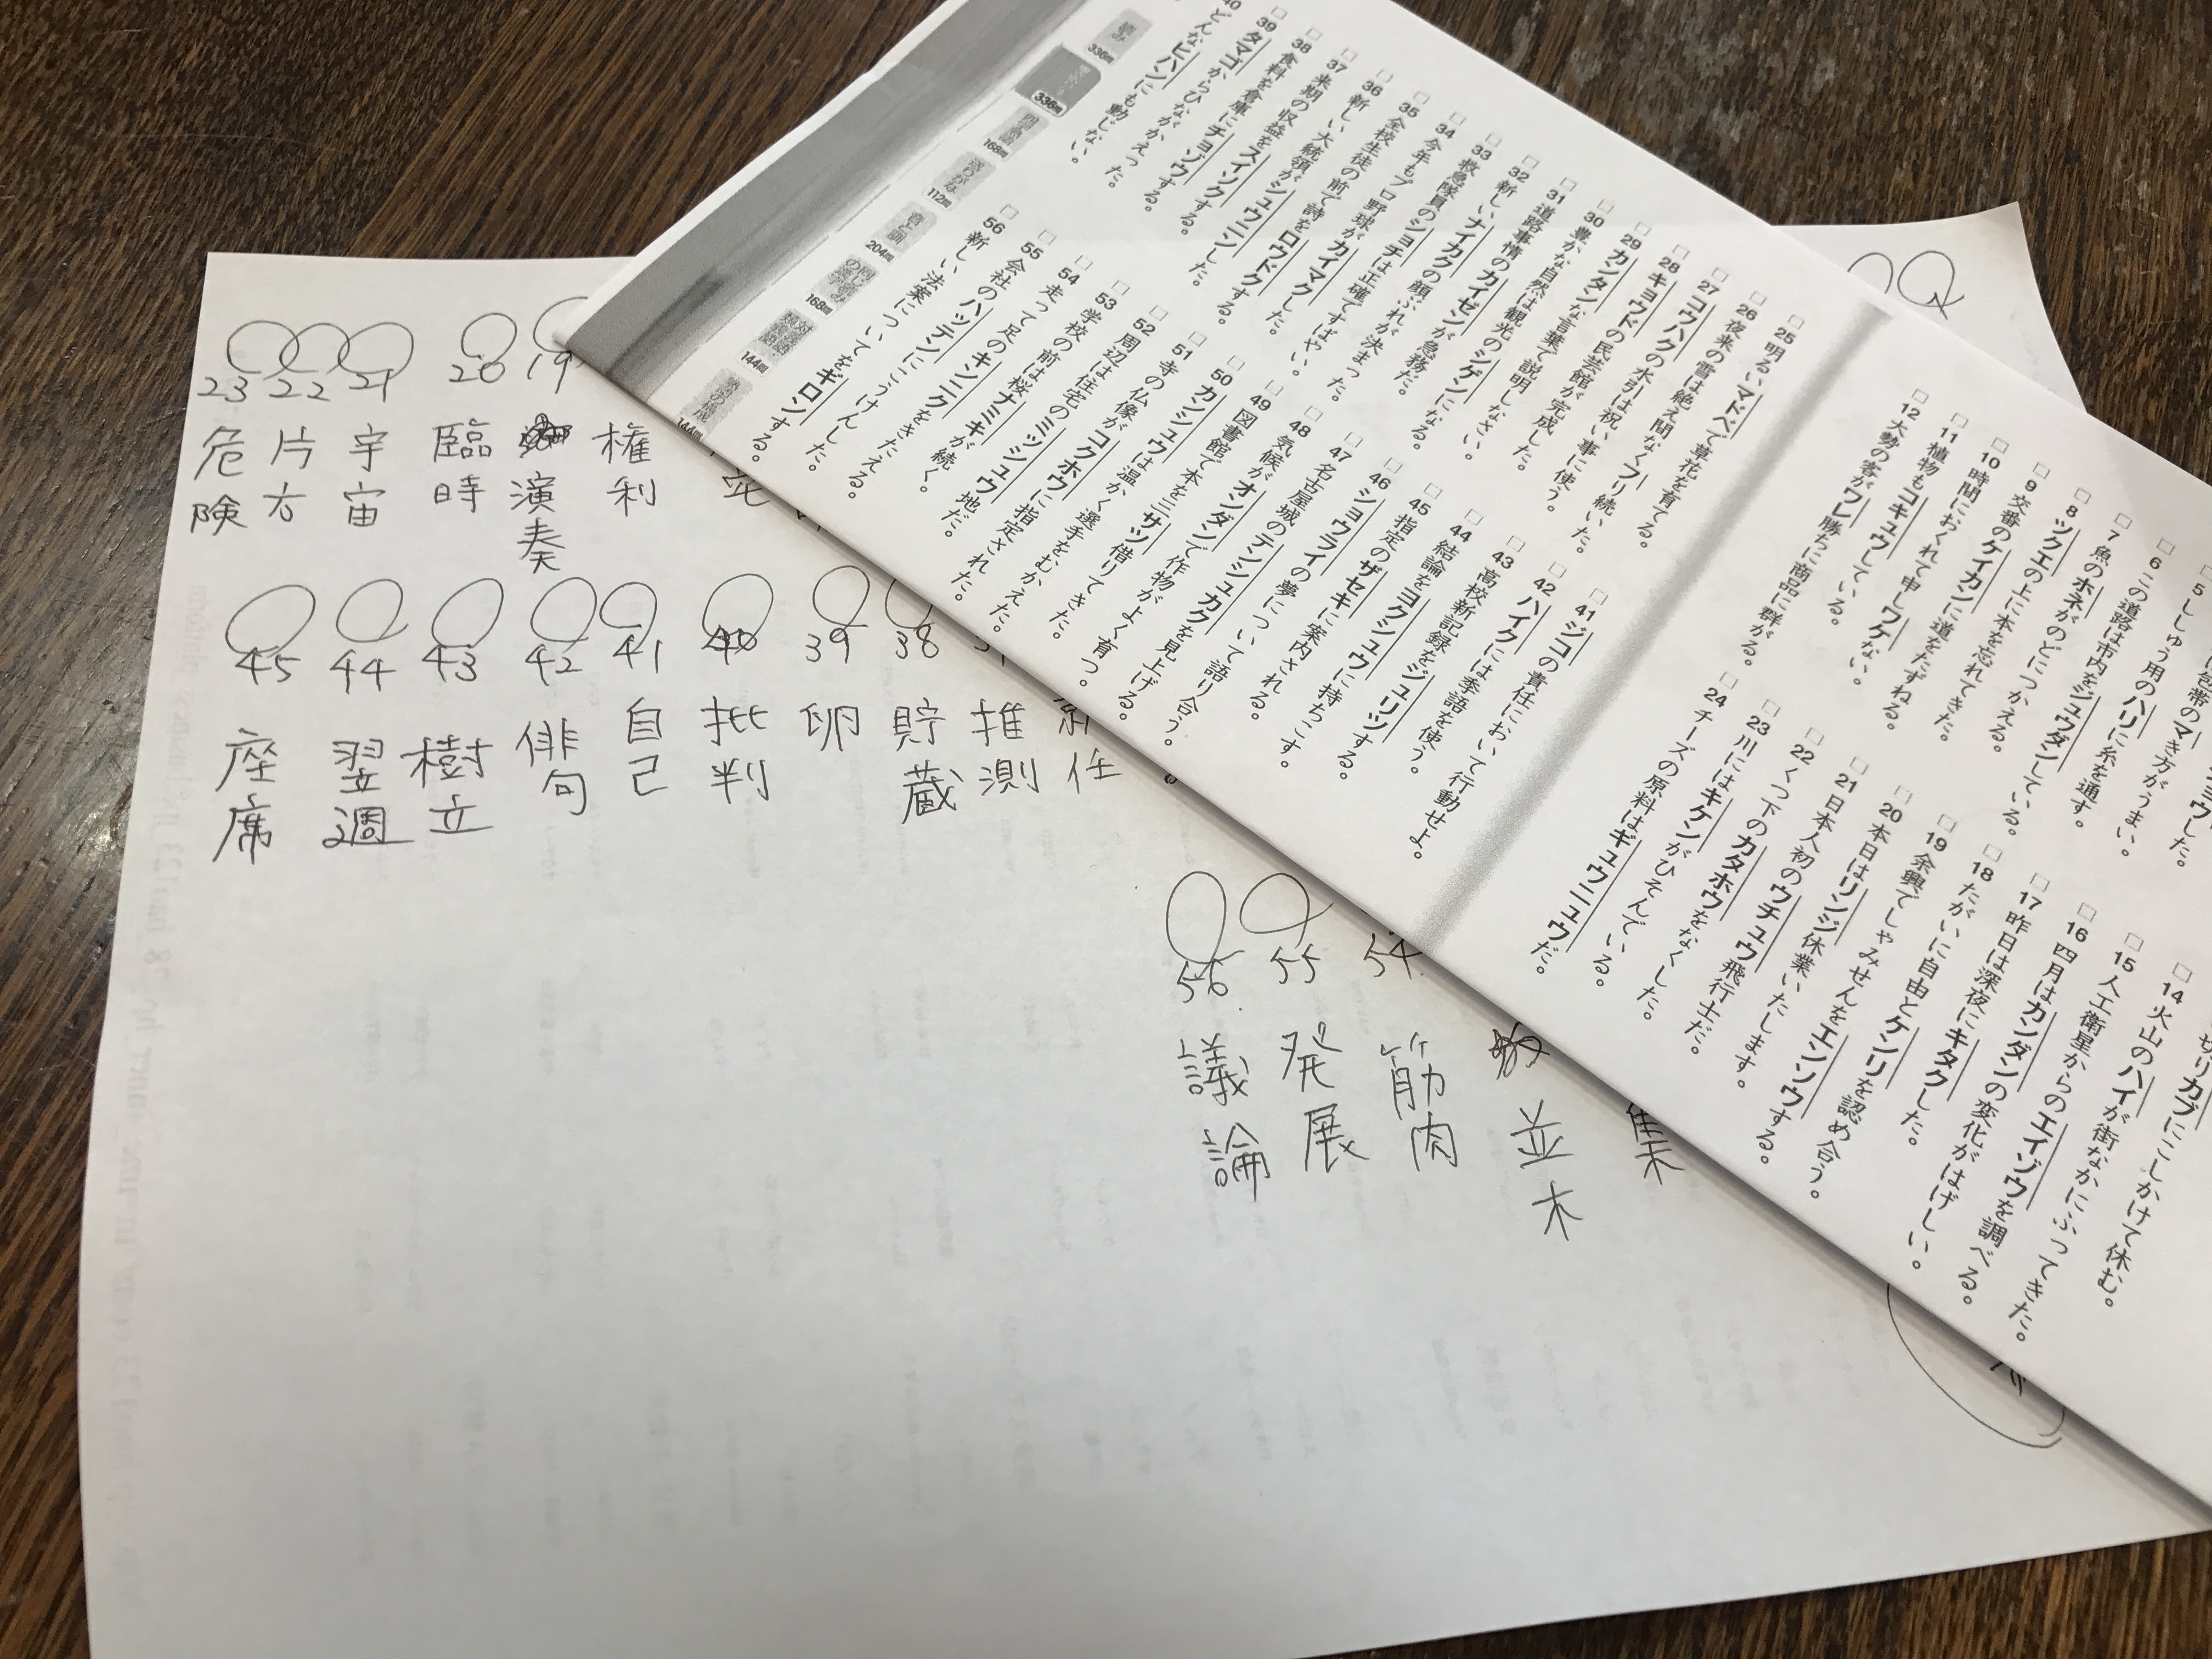 包帯のマき方がうまい。
6 ししゅう用のハリに糸を通す。
この道路は市内をジュウダンしている。
7 魚のホネがのどにつかえる。
8 ツクエの上に本を忘れてきた。
9 交番のケイカンに道をたずねる。
10 時間におくれて申しワケない。
11 植物もコキュウしている。
12 大勢の客がワレ勝ちに商品に群がる。
切りカブにこしかけて休む。
14 火山のハイが街なかにふってきた。
15 人工衛星からのエイゾウを調べる。
16 四月はカンダンの変化がはげしい。
17 昨日は深夜にキタクした。
18 たがいに自由とケンリを認め合う。
19 余興でしゃみせんをエンソウする。
20 本日はリンジ休業いたします。
21 日本人初のウチュウ飛行士だ。
22 くつ下のカタホウをなくした。
23 川にはキケンがひそんでいる。
24 チーズの原料はギュウニュウだ。
25 明るいマドベで草花を育てる。
26 夜来の雪は絶え間なくフり続いた。
27 コウハクの水引は祝い事に使う。
28 キョウドの民芸館が完成した。
29 カンタンな言葉で説明しなさい。
30 豊かな自然は観光のシゲンになる。
31 道路事情のカイゼンが急務だ。
32 新しいナイカクの顔ぶれが決まった。
33 救急隊員のショチは正確ですばやい。
34 今年もプロ野球がカイマクした。
35 全校生徒の前で詩をロウドクする。
36 新しい大統領がシュウニンした。
37 来期の収益をスイソクする。
38 食料を倉庫にチョゾウする。
39 タマゴからひながかえった。
40 どんなヒハンにも動じない。
41 ジコの責任において行動せよ。
42 ハイクには季語を使う。
43 高校新記録をジュリツする。
44 結論をヨクシュウに持ちこす。
45 指定のザセキに案内される。
46 ショウライの夢について語り合う。
47 名古屋城のテンシュカクを見上げる。
48 気候がオンダンで作物がよく育つ。
49 図書館で本を三サツ借りてきた。
50 カンシュウは温かく選手をむかえた。
51 寺の仏像がコクホウに指定された。
52 周辺は住宅のミッシュウ地だ。
53 学校の前は桜ナミキが続く。
54 走って足のキンニクをきたえる。
55 会社のハッテンにこうけんした。
56 新しい法案についてをギロンする。
336問
336問
168問
112問
204問
168問
144問
144問
権利
19 演奏
20 臨時
21 宇宙
22 片方
23 危険
任
推測
38 貯蔵
39 卵
40 批判
41 自己
42 俳句
43 樹立
44 翌週
45 座席
集
並木
54 筋肉
55 発展
56 議論